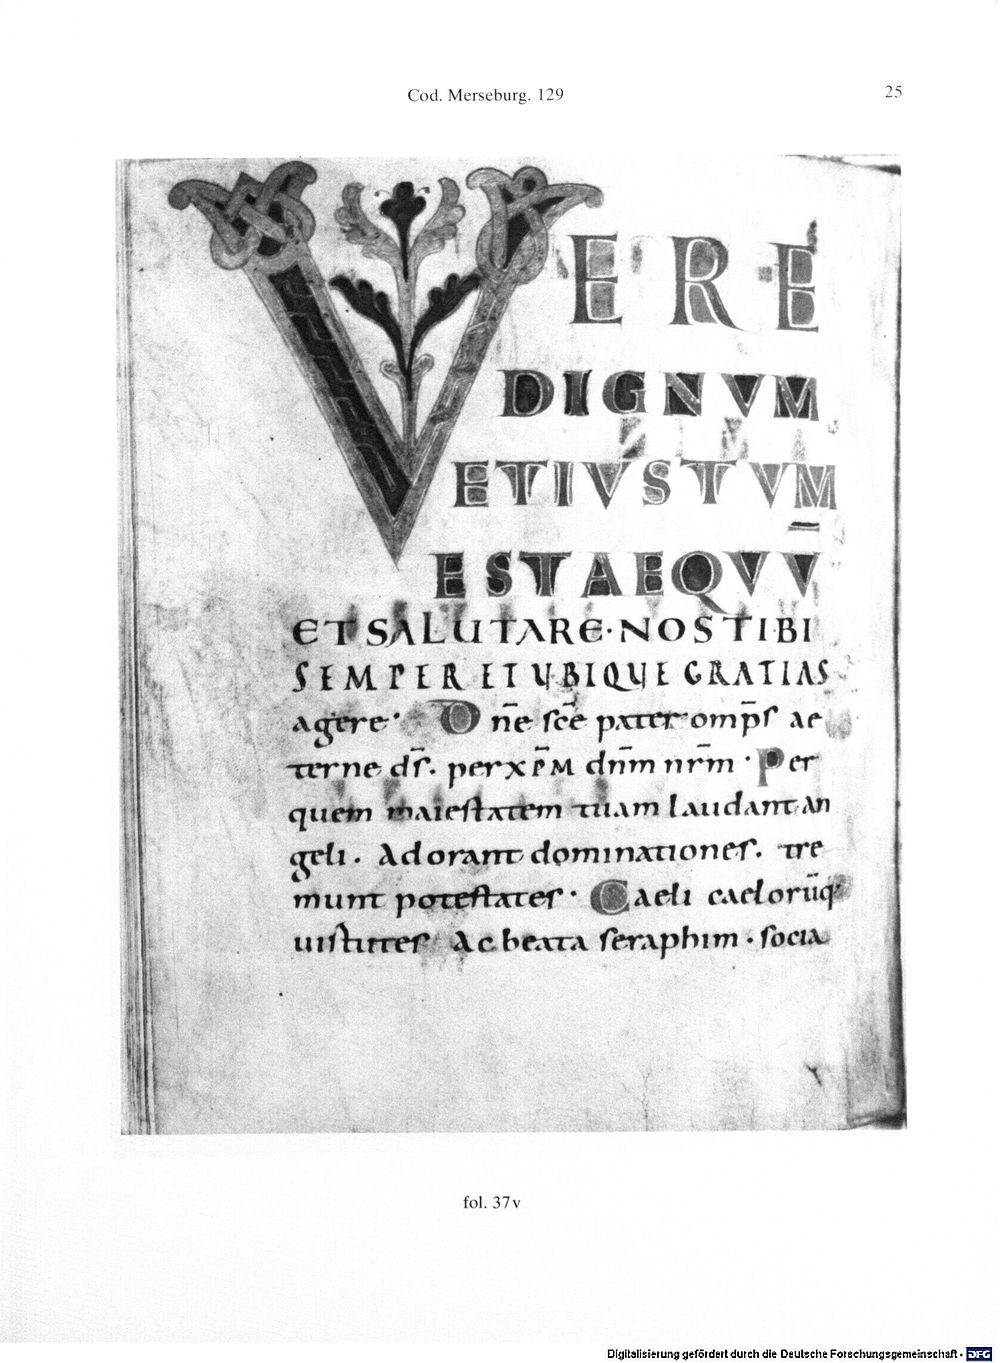 Cod. Merseburg. 129
25
VERE
DIGNVM
ETIVSTVM
ESTAEQVV̄
ETSALUTARE·NOSTIBI
SEMPER ETUBIQUE GRATIAS
agere· Dn̄e sc̄e pater omp̄s ae
terne ds̄. perxp̄m dn̄m nr̄m · Per
quem maiestatem tuam laudant an
geli. Adorant dominationes. tre
munt potestates · Caeli caeloru̅q·
uirtutes Ac beata seraphim · socia
fol. 37v
Digitalisierung gefördert durch die Deutsche Forschungsgemeinschaft - DFG